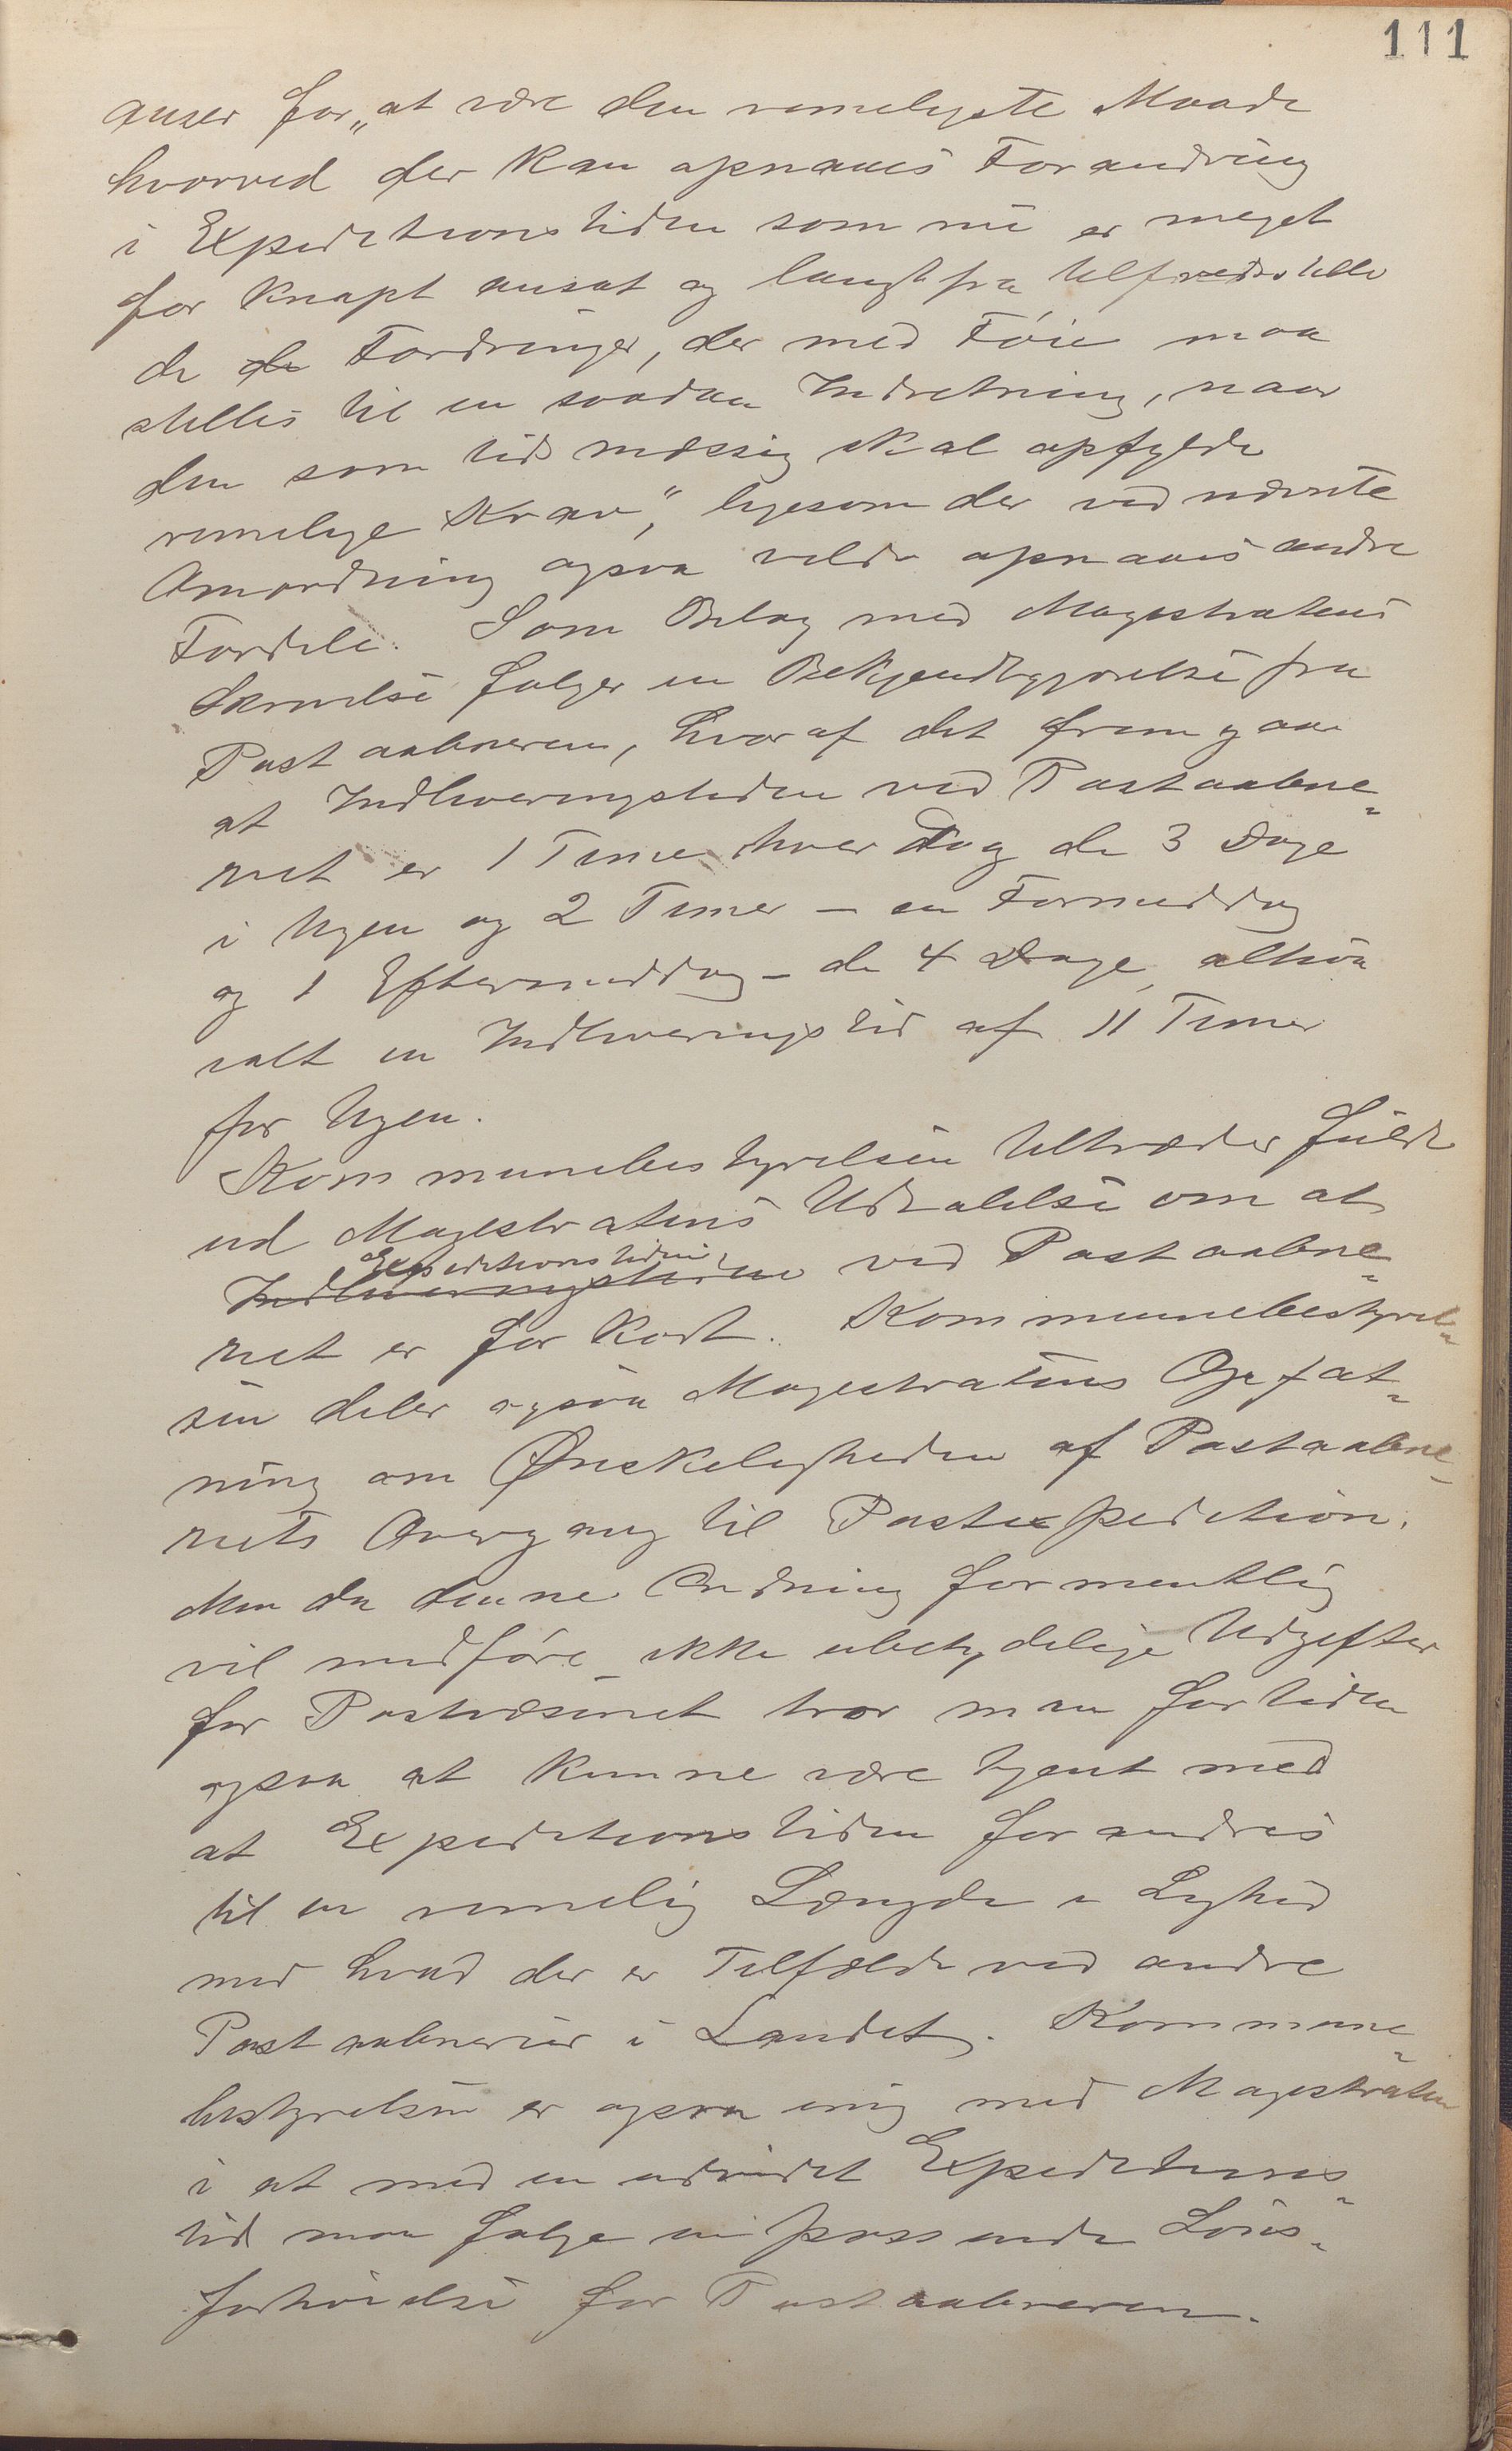 111
anser for „at være den rimeligste Maade
hvorved der kan opnaaes Forandring
i Expeditionstiden som nu er meget
for knapt ansat og langt fra tilfredsstille
de de Fordringer, der med Föie maa
stilles til en saadan Indretning, naar
den som tidsmæssig skal opfylde
rimelige Krav“, ligesom der ved nævnte
Omordning ogsaa vilde opnaaes andre
Fordele. Som Bilag med Magistratens
Skrivelse følger en Bekjendtgjørelse fra
Postaabneren, hvoraf det fremgaar
at Indleveringstiden ved Postaabne-
riet er 1 Time hver Dag de 3 Dage
i Ugen og 2 Timer – en Formiddag
og 1 Eftermiddag – de 4 Dage, altsaa
ialt en Indleveringstid af 11 Timer
for Ugen.
Kommunebestyrelsen tiltræder fuldt
ud Magistratens Udtalelse om at
Expeditionstiden
Indleveringstiden ved Postaabne-
riet er for kort. Kommunebestyrel-
sen deler ogsaa Magistratens Opfat-
ning om Ønskeligheden af Postaabne-
riets Overgang til Postexpedition.
Men da denne Ordning formentlig
vil medföre ikke ubetydelige Udgifter
for Postvæsenet tror man for tiden
ogsaa at kunne være tjent med
at Expeditionstiden forandres
til en rimelig Længde i Lighed
med hvad der er Tilfælde ved andre
Postaabnerier i Landet. Kommune-
bestyrelsen er ogsaa enig med Magistraten
i at med en udvidet Expeditions-
tid maa følge en passende Löns-
forhöielse for Postaabneren.